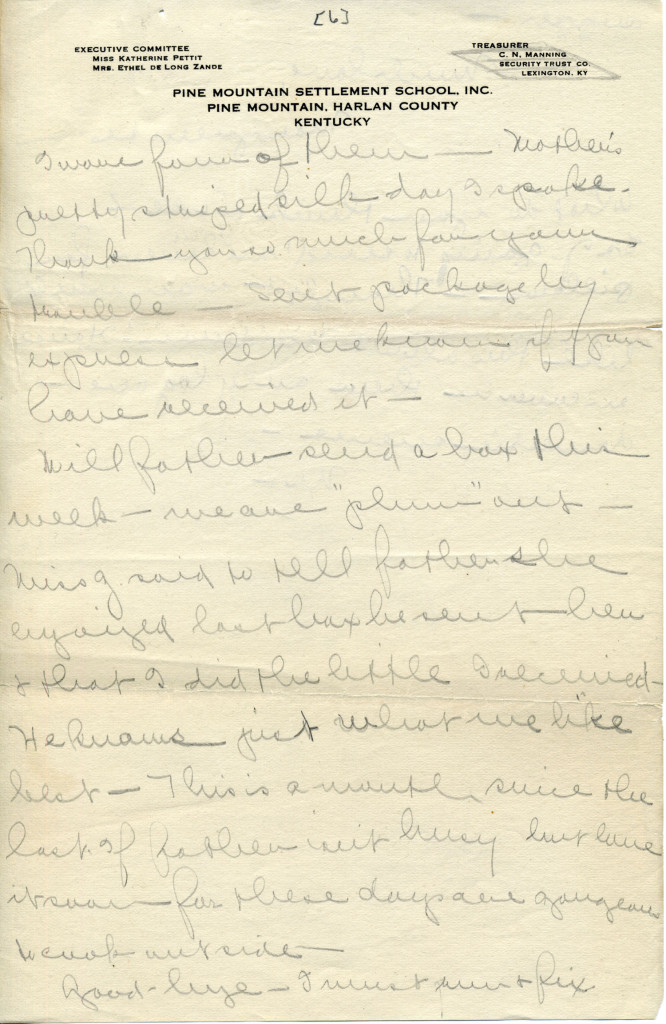 [6]
EXECUTIVE COMMITTEE
MISS KATHERINE PETTIT
MRS. ETHEL DE LONG ZANDE
TREASURER
C. N. MANNING
SECURITY TRUST CO.
LEXINGTON, KY
PINE MOUNTAIN SETTLEMENT SCHOOL, INC.
PINE MOUNTAIN, HARLAN COUNTY
KENTUCKY
I wore four of them — Mother's
pretty striped silk day I spoke.
Thank you so much for your
trouble — Sent package by
express let me know if you
have received it —
Will father send a box this
week — we are "plum" out —
Miss G. said to tell father she
enjoyed last box he sent her
& that I did the little I received —
He knows just what we like
best — This is a month since the
last. If father isn't busy
it soon — for these days are gorgeous
to cook outside —
Good-bye — I must run & fix